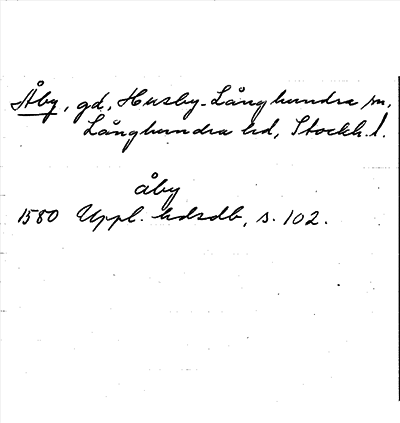 Åby, gd, Husby-Långhundra sn,
Långhundra hd, Stockh. l.
åby
1580 Uppl. hdsdb, s. 102.